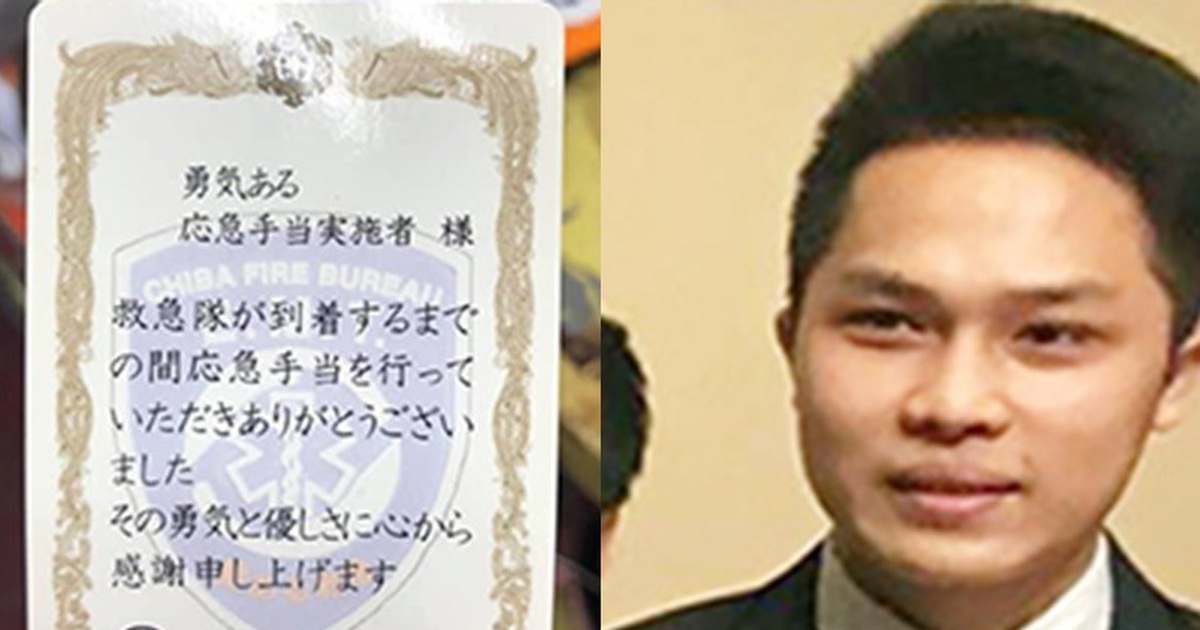 勇気ある
応急手当実施者 様
CHIBA FIRE BUREAU
救急隊が到着するまで
の間応急手当を行って
いただきありがとうござい
ました
その勇気と優しさに心から
感謝申し上げます